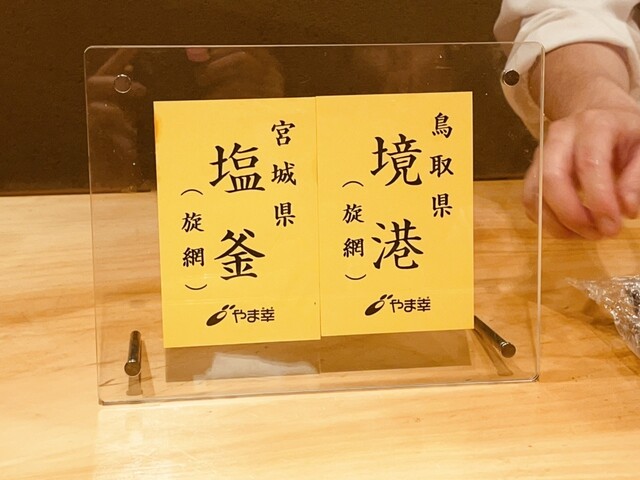 鳥取県
境港
(旋網)
やま幸
宮城県
塩釜
(旋網)
やま幸